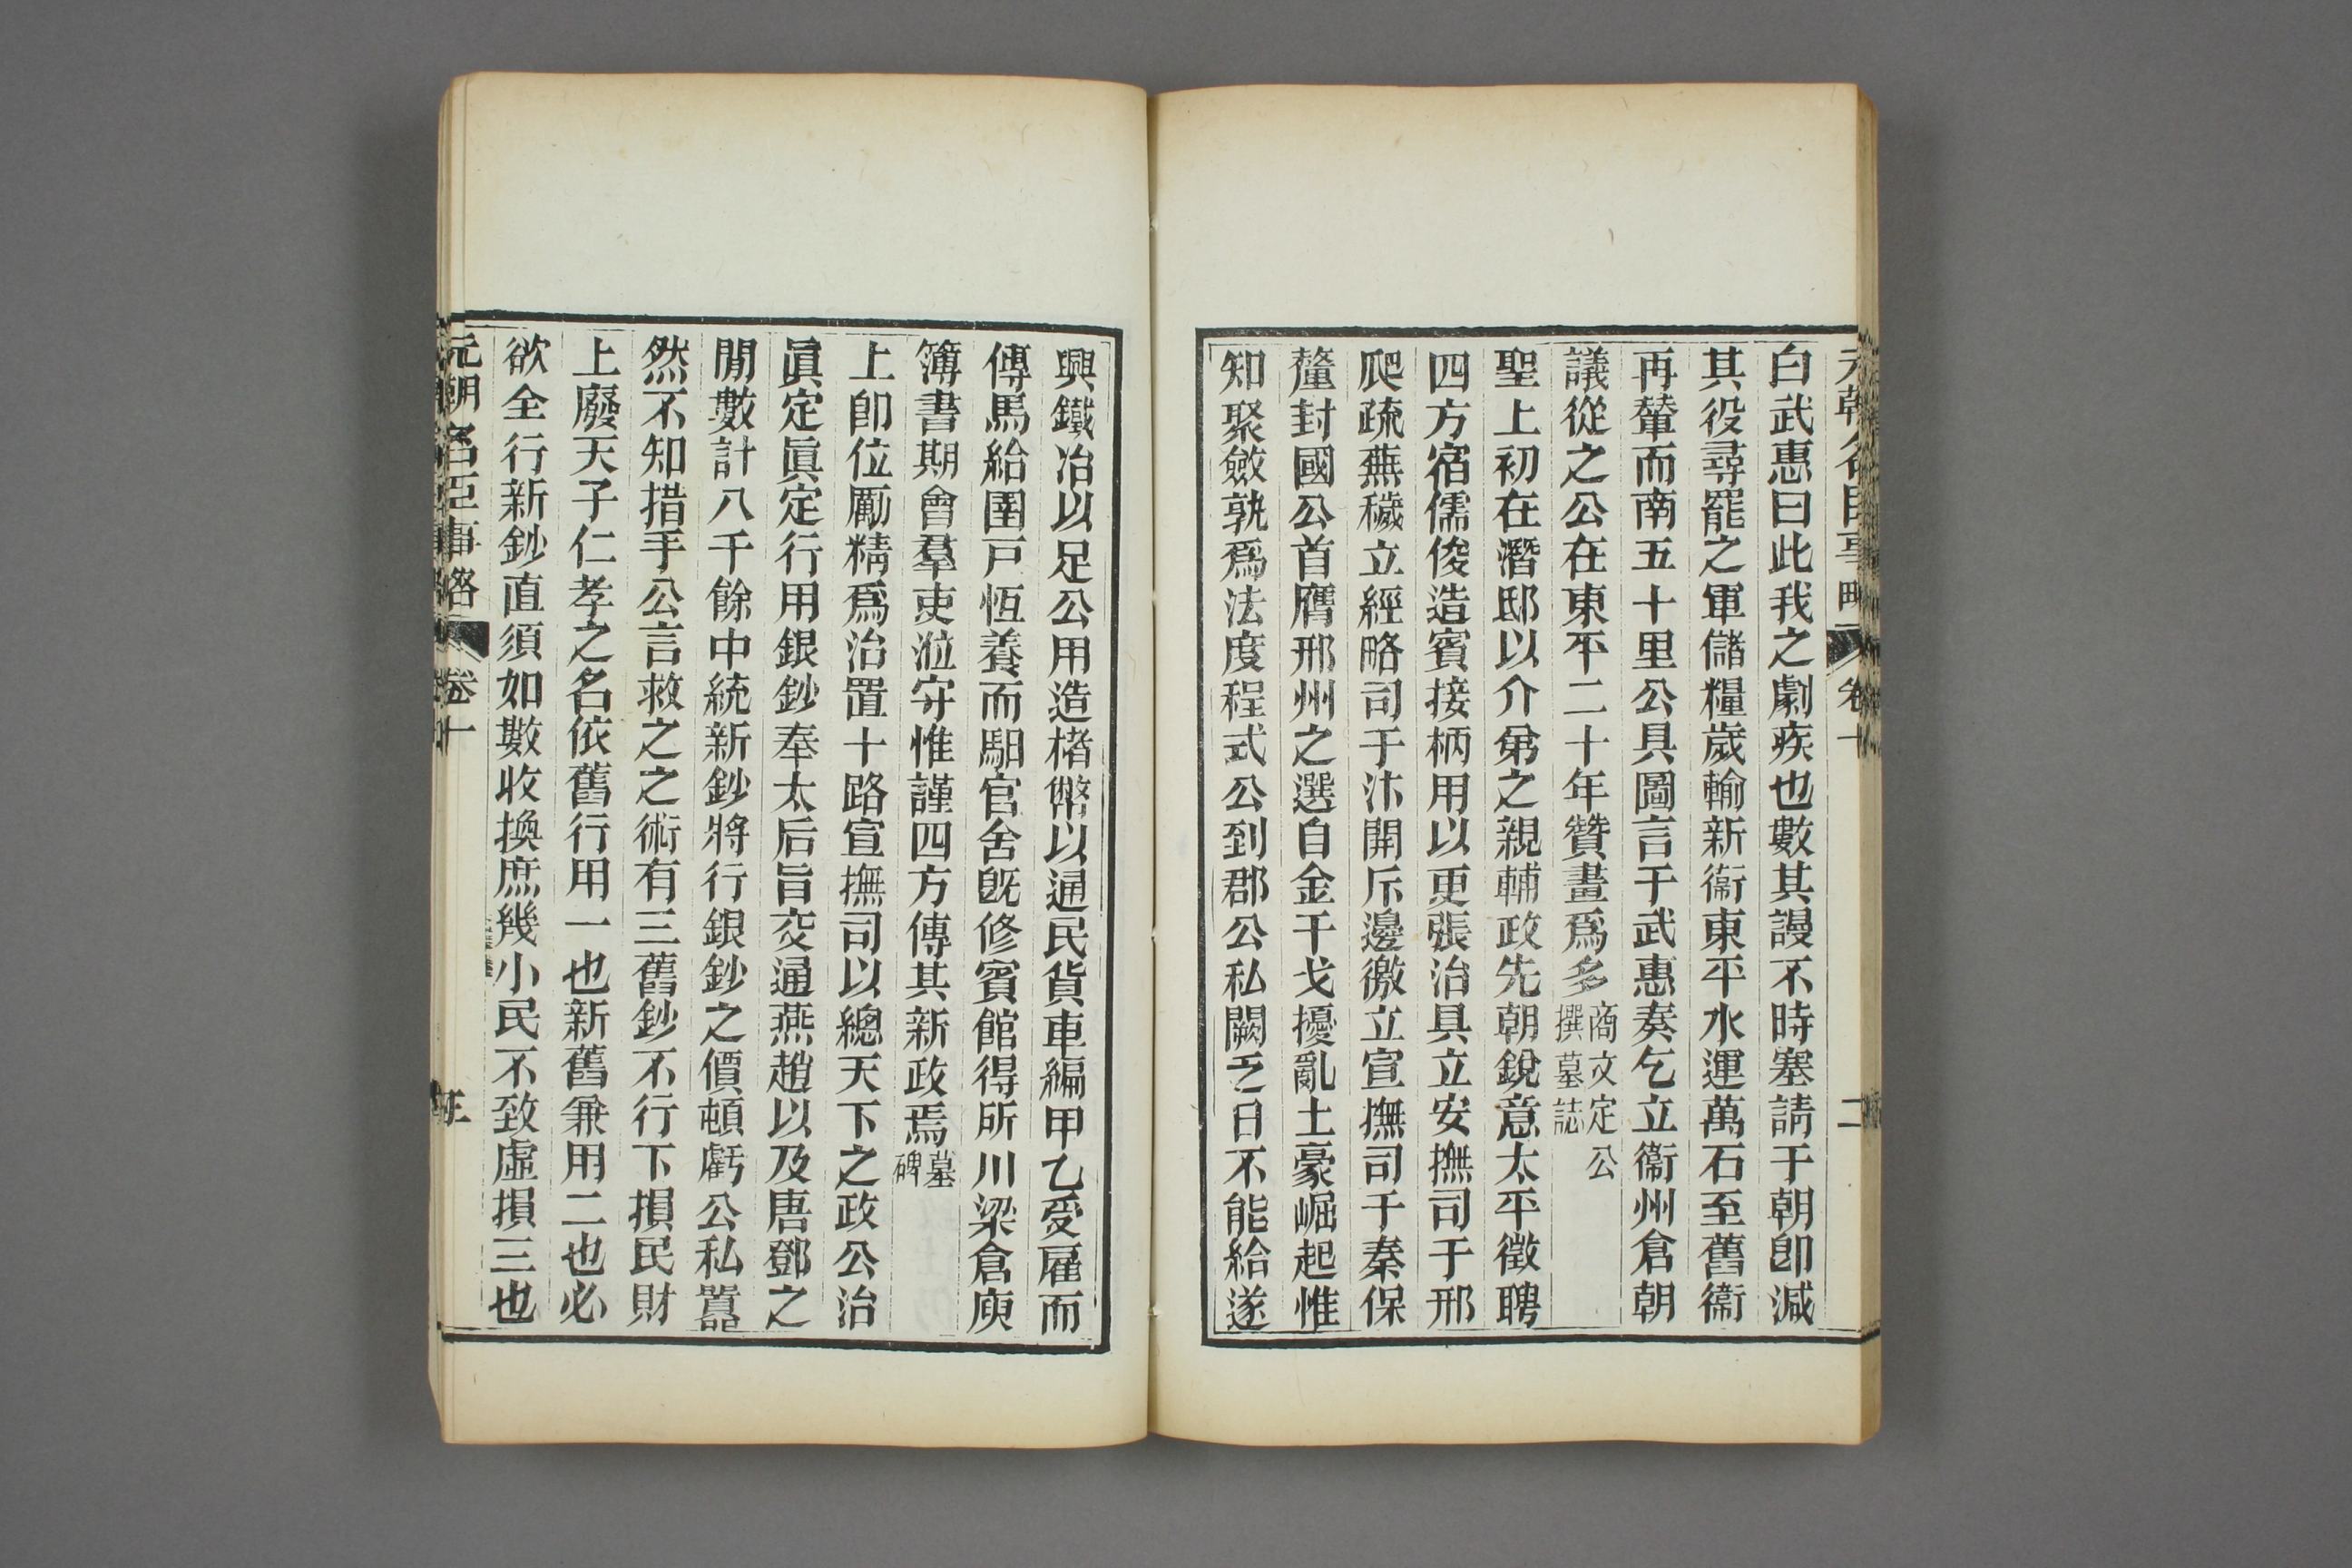 元朝名臣事略 卷十 二
白武惠曰此我之劇疾也數其謾不時塞請于朝卽減
其役尋罷之軍儲糧歲輸新衞東平水運萬石至舊衞
再輦而南五十里公具圖言于武惠奏乞立衞州倉朝
議從之公在東平二十年贊畫爲多商文定公撰墓誌
聖上初在潛邸以介弟之親輔政先朝銳意太平徵聘
四方宿儒俊造賓接柄用以更張治具立安撫司于邢
爬疏蕪穢立經略司于汴開斥邊徼立宣撫司于秦保
釐封國公首膺邢州之選自金干戈擾亂土豪崛起惟
知聚斂孰爲法度程式公到郡公私闕乏日不能給遂
興鐵冶以足公用造楮幣以通民貨車編甲乙受雇而
傳馬給圉戶恆養而馹官舍旣修賓館得所川梁倉庾
簿書期會羣吏涖守惟謹四方傳其新政焉墓碑
上卽位勵精爲治置十路宣撫司以總天下之政公治
眞定眞定行用銀鈔奉太后旨交通燕趙以及唐鄧之
閒數計八千餘中統新鈔將行銀鈔之價頓虧公私囂
然不知措手公言救之之術有三舊鈔不行下損民財
上廢天子仁孝之名依舊行用一也新舊兼用二也必
欲全行新鈔直須如數收換庶幾小民不致虛損三也
元朝名臣事略 卷十 三